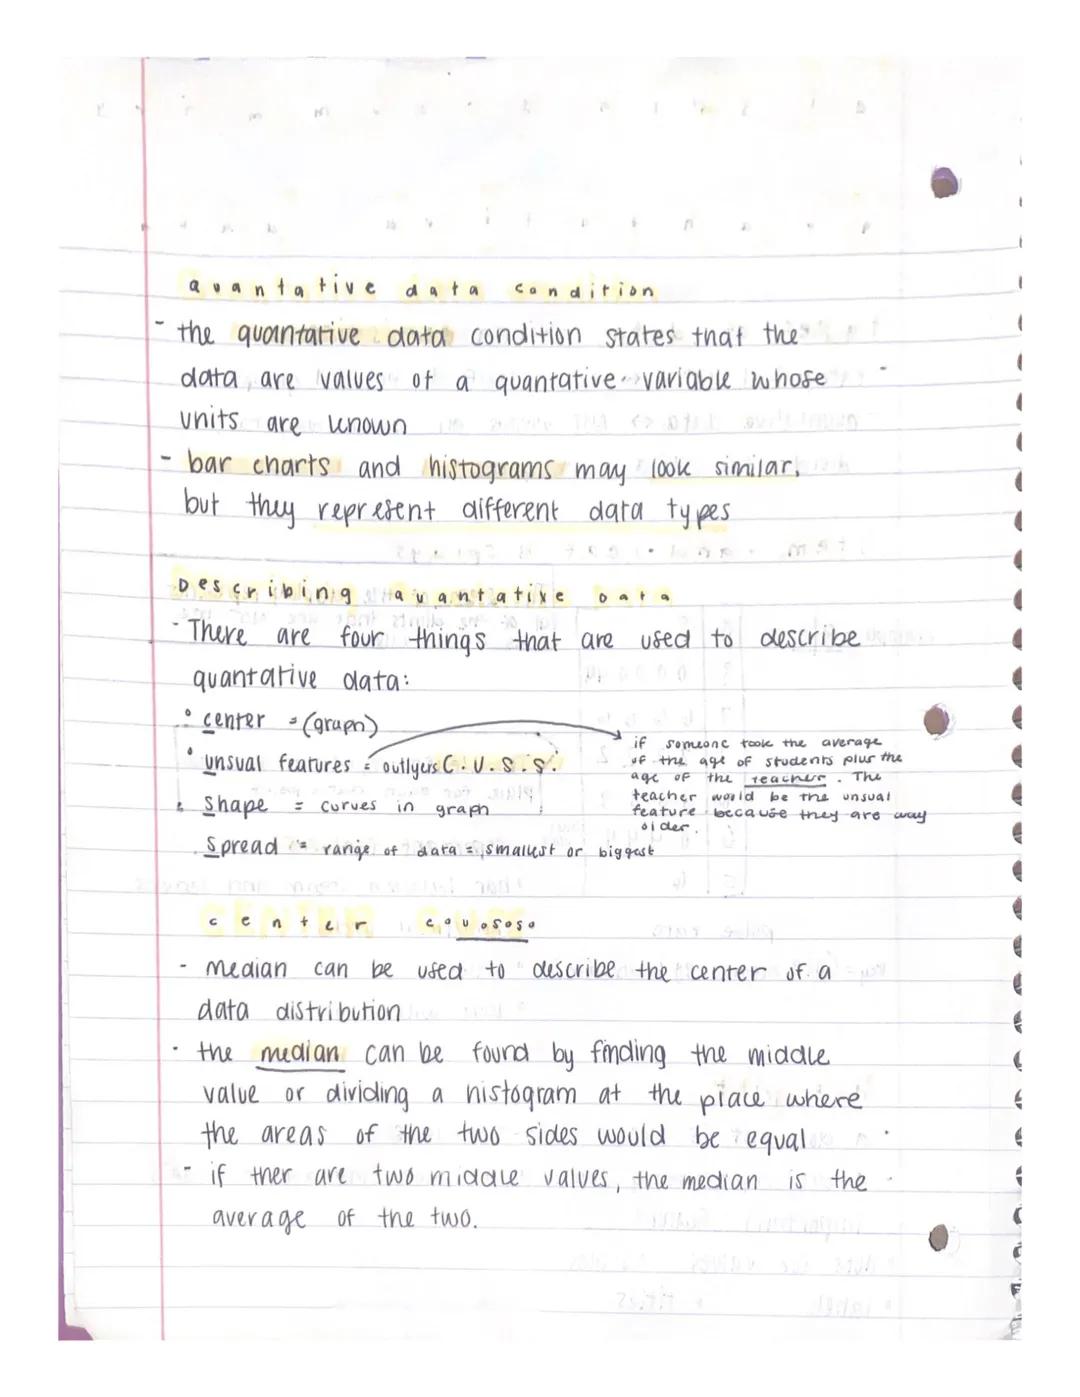 Quantative data condition
- the quantative data condition states that the
data are values of a quantative variable whose
units are known
- bar charts and histograms may look similar,
but they represent different data types
Describing Quantative Data
- There are four things that are used to describe
quantative data:
° center = (graph)
° unsual features = outlyers C.U.S.S.
if someone took the average
of the age of students plus the
age of the teacher. The
teacher would be the unsual
feature because they are way
older.
• Shape = curves in graph
. Spread = range of data = smallest or biggest
center
- median can be used to describe the center of a
data distribution
• the median can be found by finding the middle
value or dividing a histogram at the place where
the areas of the two sides would be equal
- if ther are two middle values, the median is the
average of the two.